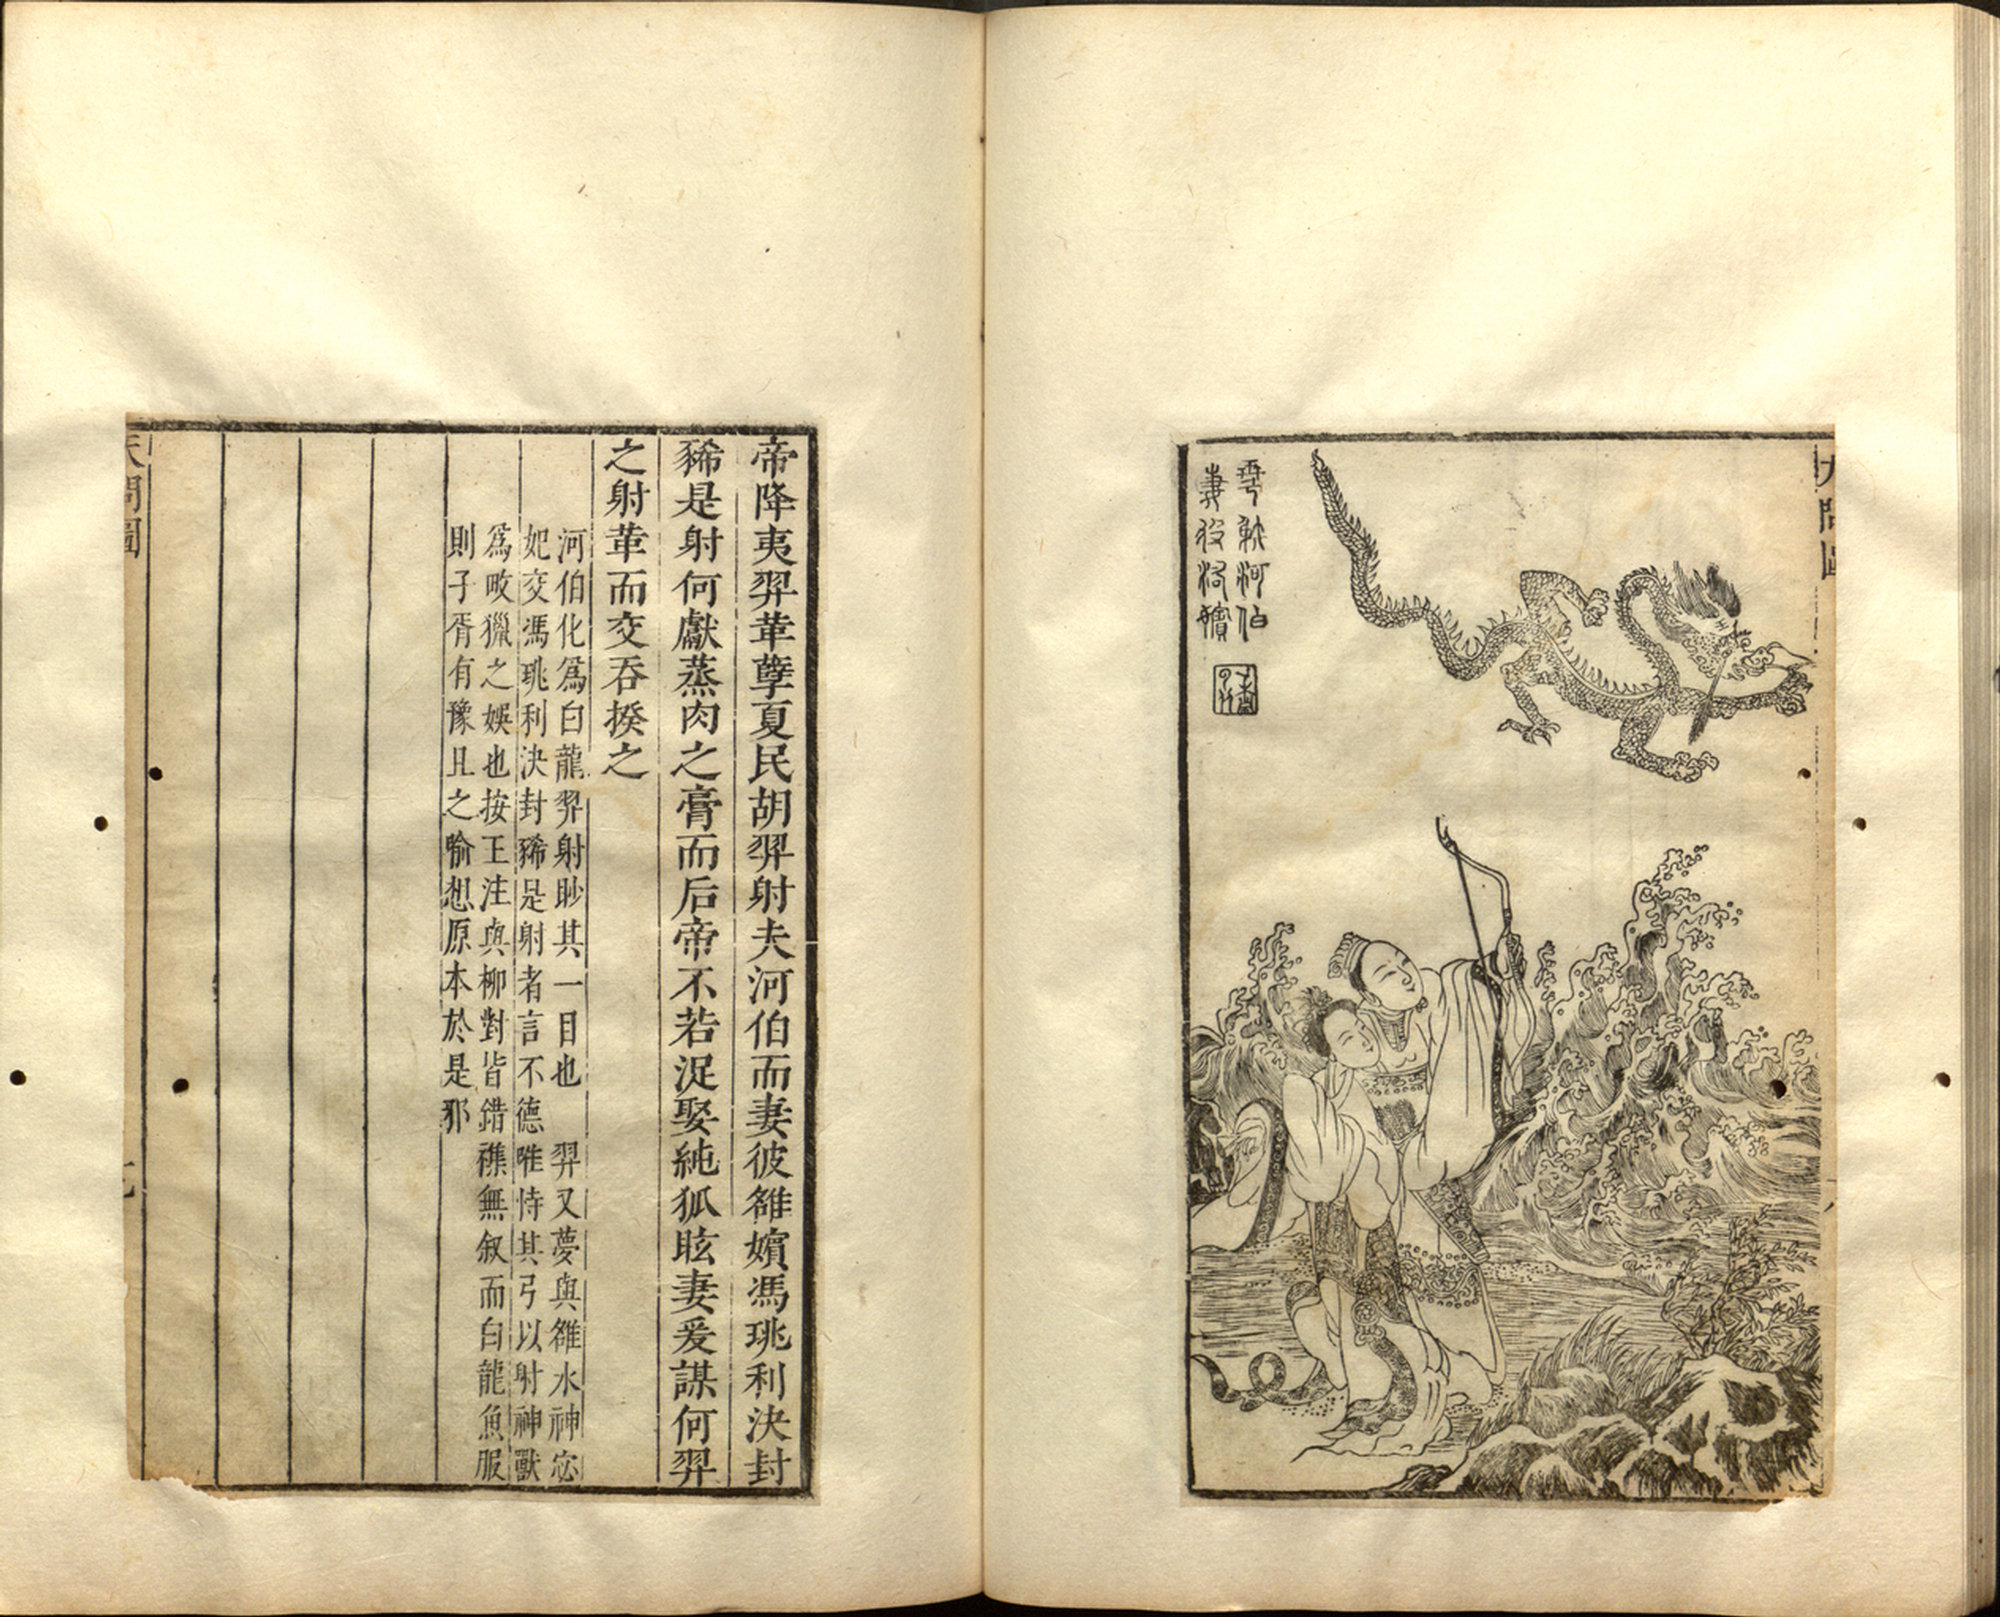 天問圖
羿躲河伯
妻彼洛嬪
帝降夷羿革孽夏民胡羿射夫河伯而妻彼雒嬪馮珧利決封
豨是射何獻蒸肉之膏而后帝不若浞娶純狐眩妻爰謀何羿
之射革而交吞揆之
河伯化爲白龍羿射眇其一目也 羿又夢與雒水神宓
妃交馮珧利決封豨是射者言不德唯恃其弓以射神獸
爲畋獵之娛也按王注與柳對皆錯襍無叙而白龍魚服
則子胥有豫且之喻想原本於是邪
天問圖
七